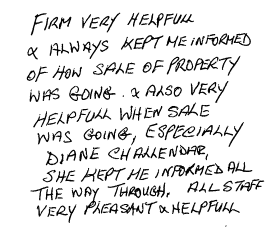 FIRM VERY HELPFULL
& ALWAYS KEPT ME INFORMED
OF HOW SALE OF PROPERTY
WAS GOING. & ALSO VERY
HELPFULL WHEN SALE
WAS GOING, ESPECIALLY
DIANE CHALLENDAR,
SHE KEPT ME INFORMED ALL
THE WAY THROUGH. ALL STAFF
VERY PLEASANT & HELPFULL